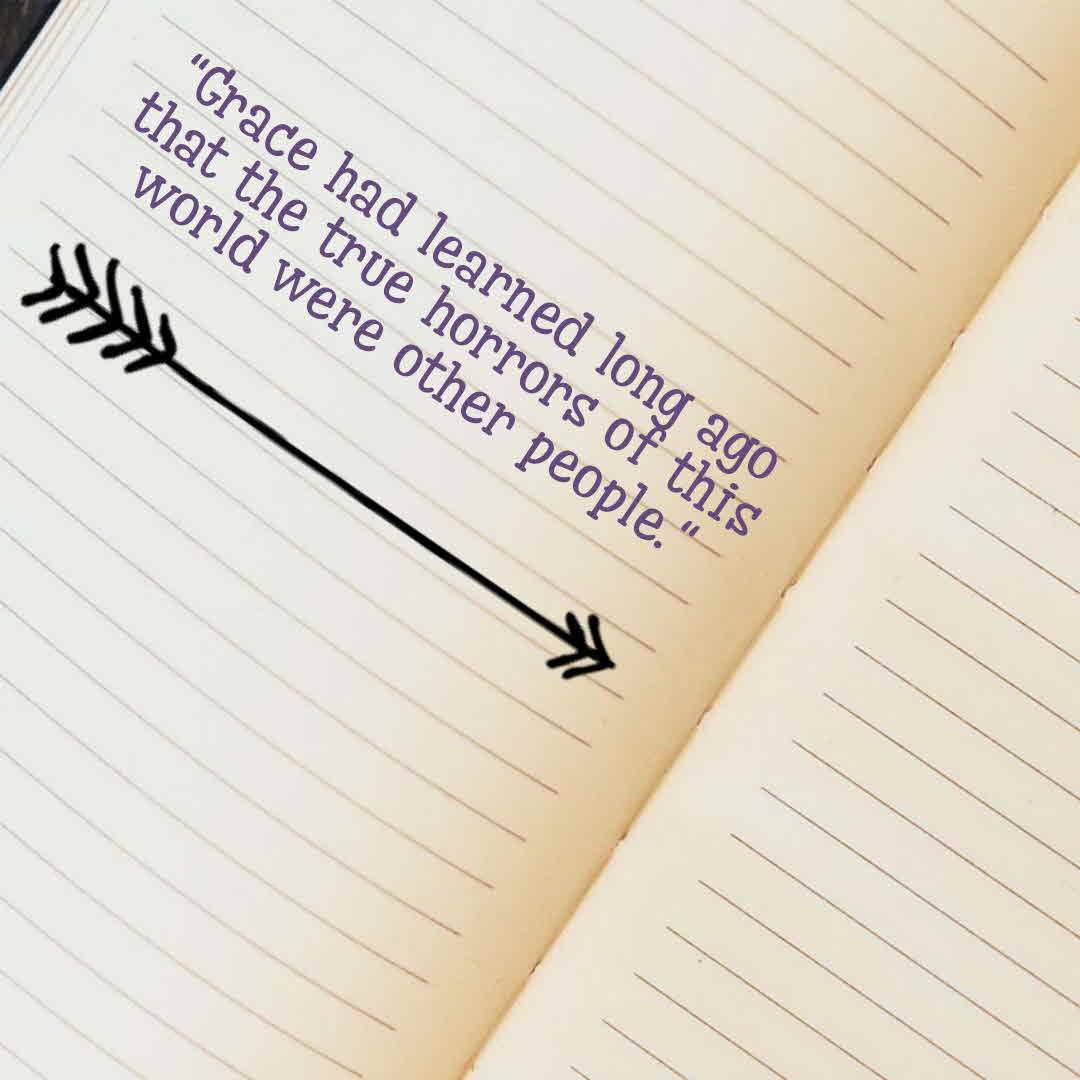 “Grace had learned long ago
that the true horrors of this
world were other people.“